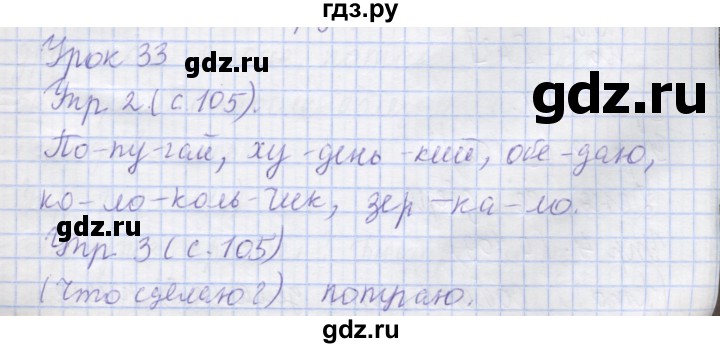 гдз.ру
Урок 33
gdz.ru
gdz.ru
Упр 2 (с. 105).
По-пу-гай, ху-день-кий, обе-даю,
ко-ло-коль-чик, зер-ка-ло.
gdz.ru
Упр 3 (с. 105)
(Что сделаю?) поиграю.
gdz.ru